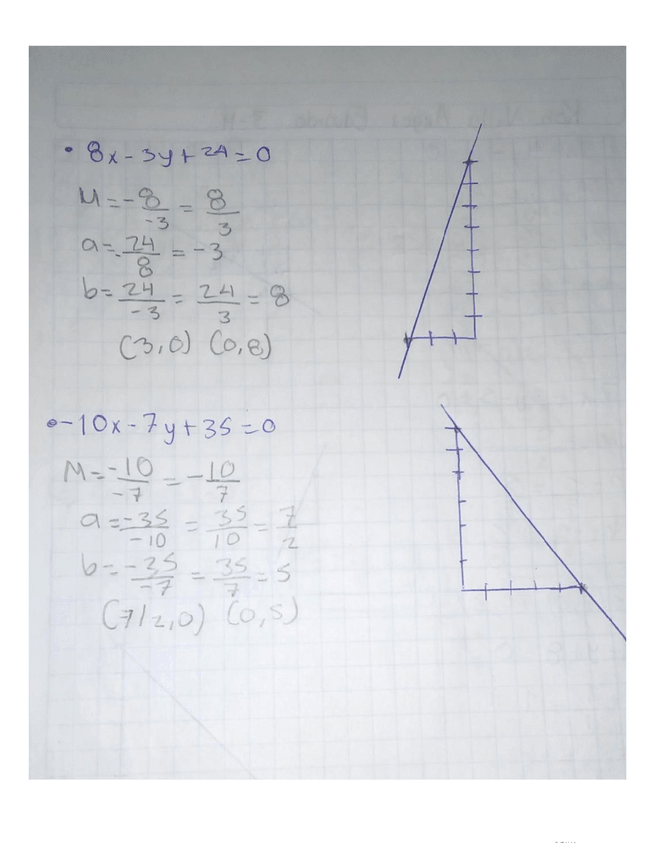 • 8x - 3y + 24 = 0
M = -8/-3 = 8/3
a = -24/8 = -3
b = 24/-3 = 24/3 = 8
(3,0) (0,8)
• -10x - 7y + 35 = 0
M = -10/-7 = -10/7
a = -35/-10 = 35/10 = 7/2
b = -35/-7 = 35/7 = 5
(7/2,0) (0,5)